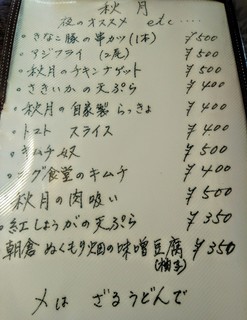 秋月
夜のオススメ etc....
・きなこ豚の串カツ(1本) ¥500
・アジフライ (2尾) ¥500
・秋月のチキンナゲット ¥500
・さきいかの天ぷら ¥400
・秋月の自家製 らっきょ ¥400
・トマト スライス ¥400
・キムチ奴 ¥500
食堂のキムチ ¥400
秋月の肉吸い ¥500
・紅しょうがの天ぷら ¥350
朝倉 ぬくもり畑の味噌豆腐 ¥350
(柚子)
〆は ざるうどんで